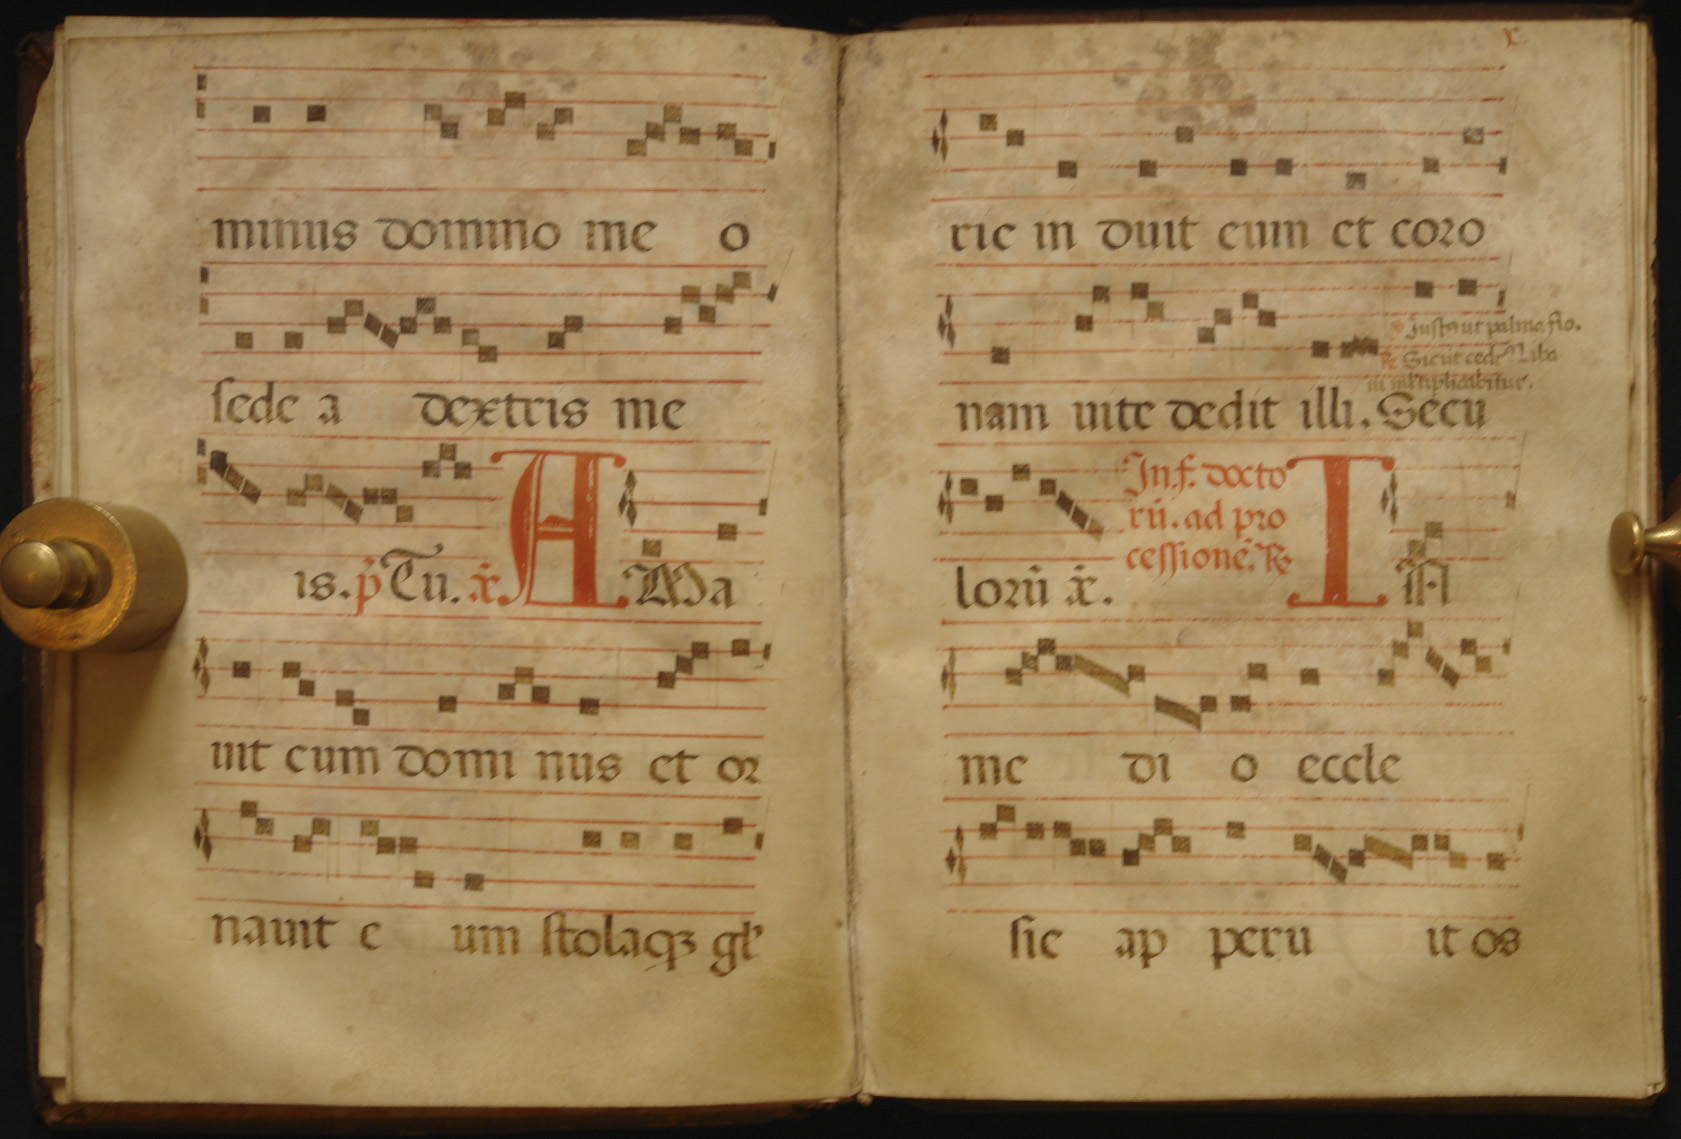 minus domino me o
sede a dextris me
is. p̄ Tu. x̄. A Ma
uit eum domi nus et or
nauit e um stolaqȝ gł
x.
rie in duit eum et coro
nam uite dedit illi. Secu
℣ Just9 ut palma flo.
℟ Sicut cedr9 Liba
ni multiplicabitur.
loꝝ ū x̄.
In f. docto
rū. ad pro
cessionē. ℟
I N
me di o eccle
sie ap peru it os